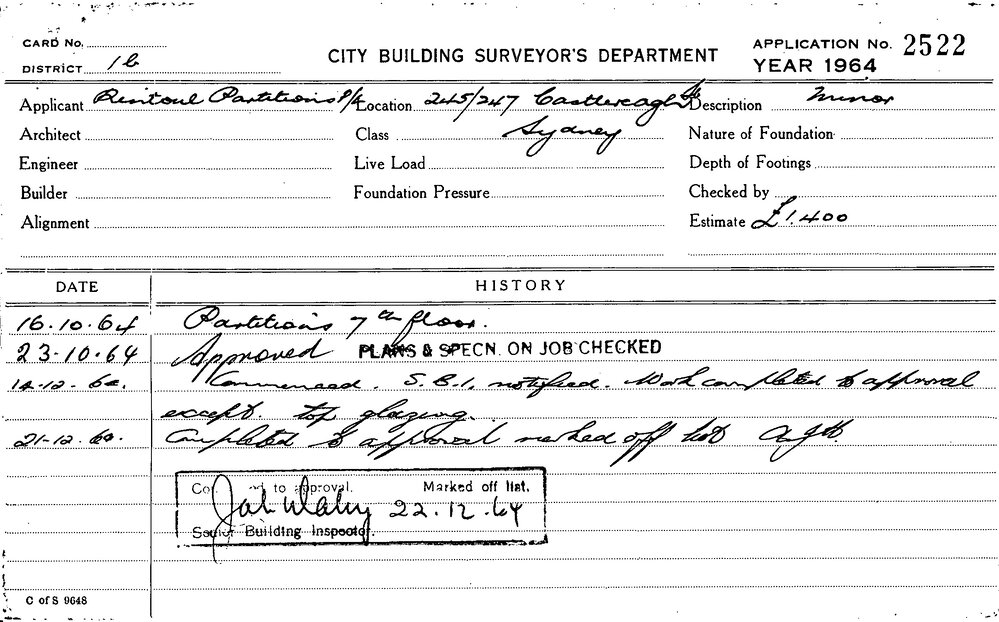 CARD No.
CITY BUILDING SURVEYOR'S DEPARTMENT
APPLICATION No. 2522
DISTRICT 1b
YEAR 1964
Applicant Rintoul Partitions P/L Location 245/247 Castlereagh St Description Minor
Architect Class Sydney Nature of Foundation
Engineer Live Load Depth of Footings
Builder Foundation Pressure Checked by
Alignment Estimate £1.400
DATE HISTORY
16.10.64 Partitions 7th floor.
23.10.64 Approved PLANS & SPECN. ON JOB CHECKED
14.12.64. Commenced. S.B.I. notified. Work completed to approval
except top glazing.
21.12.64. Completed to approval marked off list
Co to approval. Marked off list.
22.12.64
Senior Building Inspector.
C of S 9648